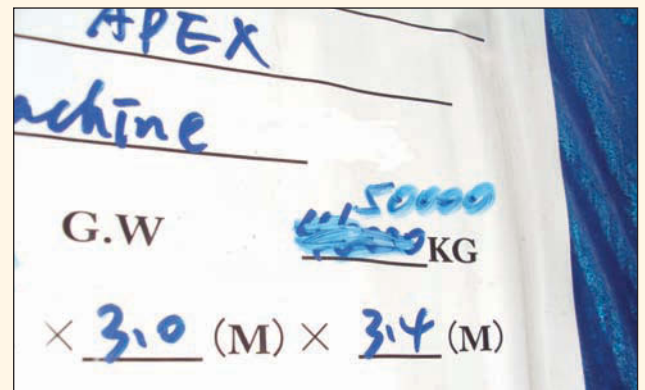 APEX
achine
50000
G.W KG
× 3.0 (M) × 3.4 (M)